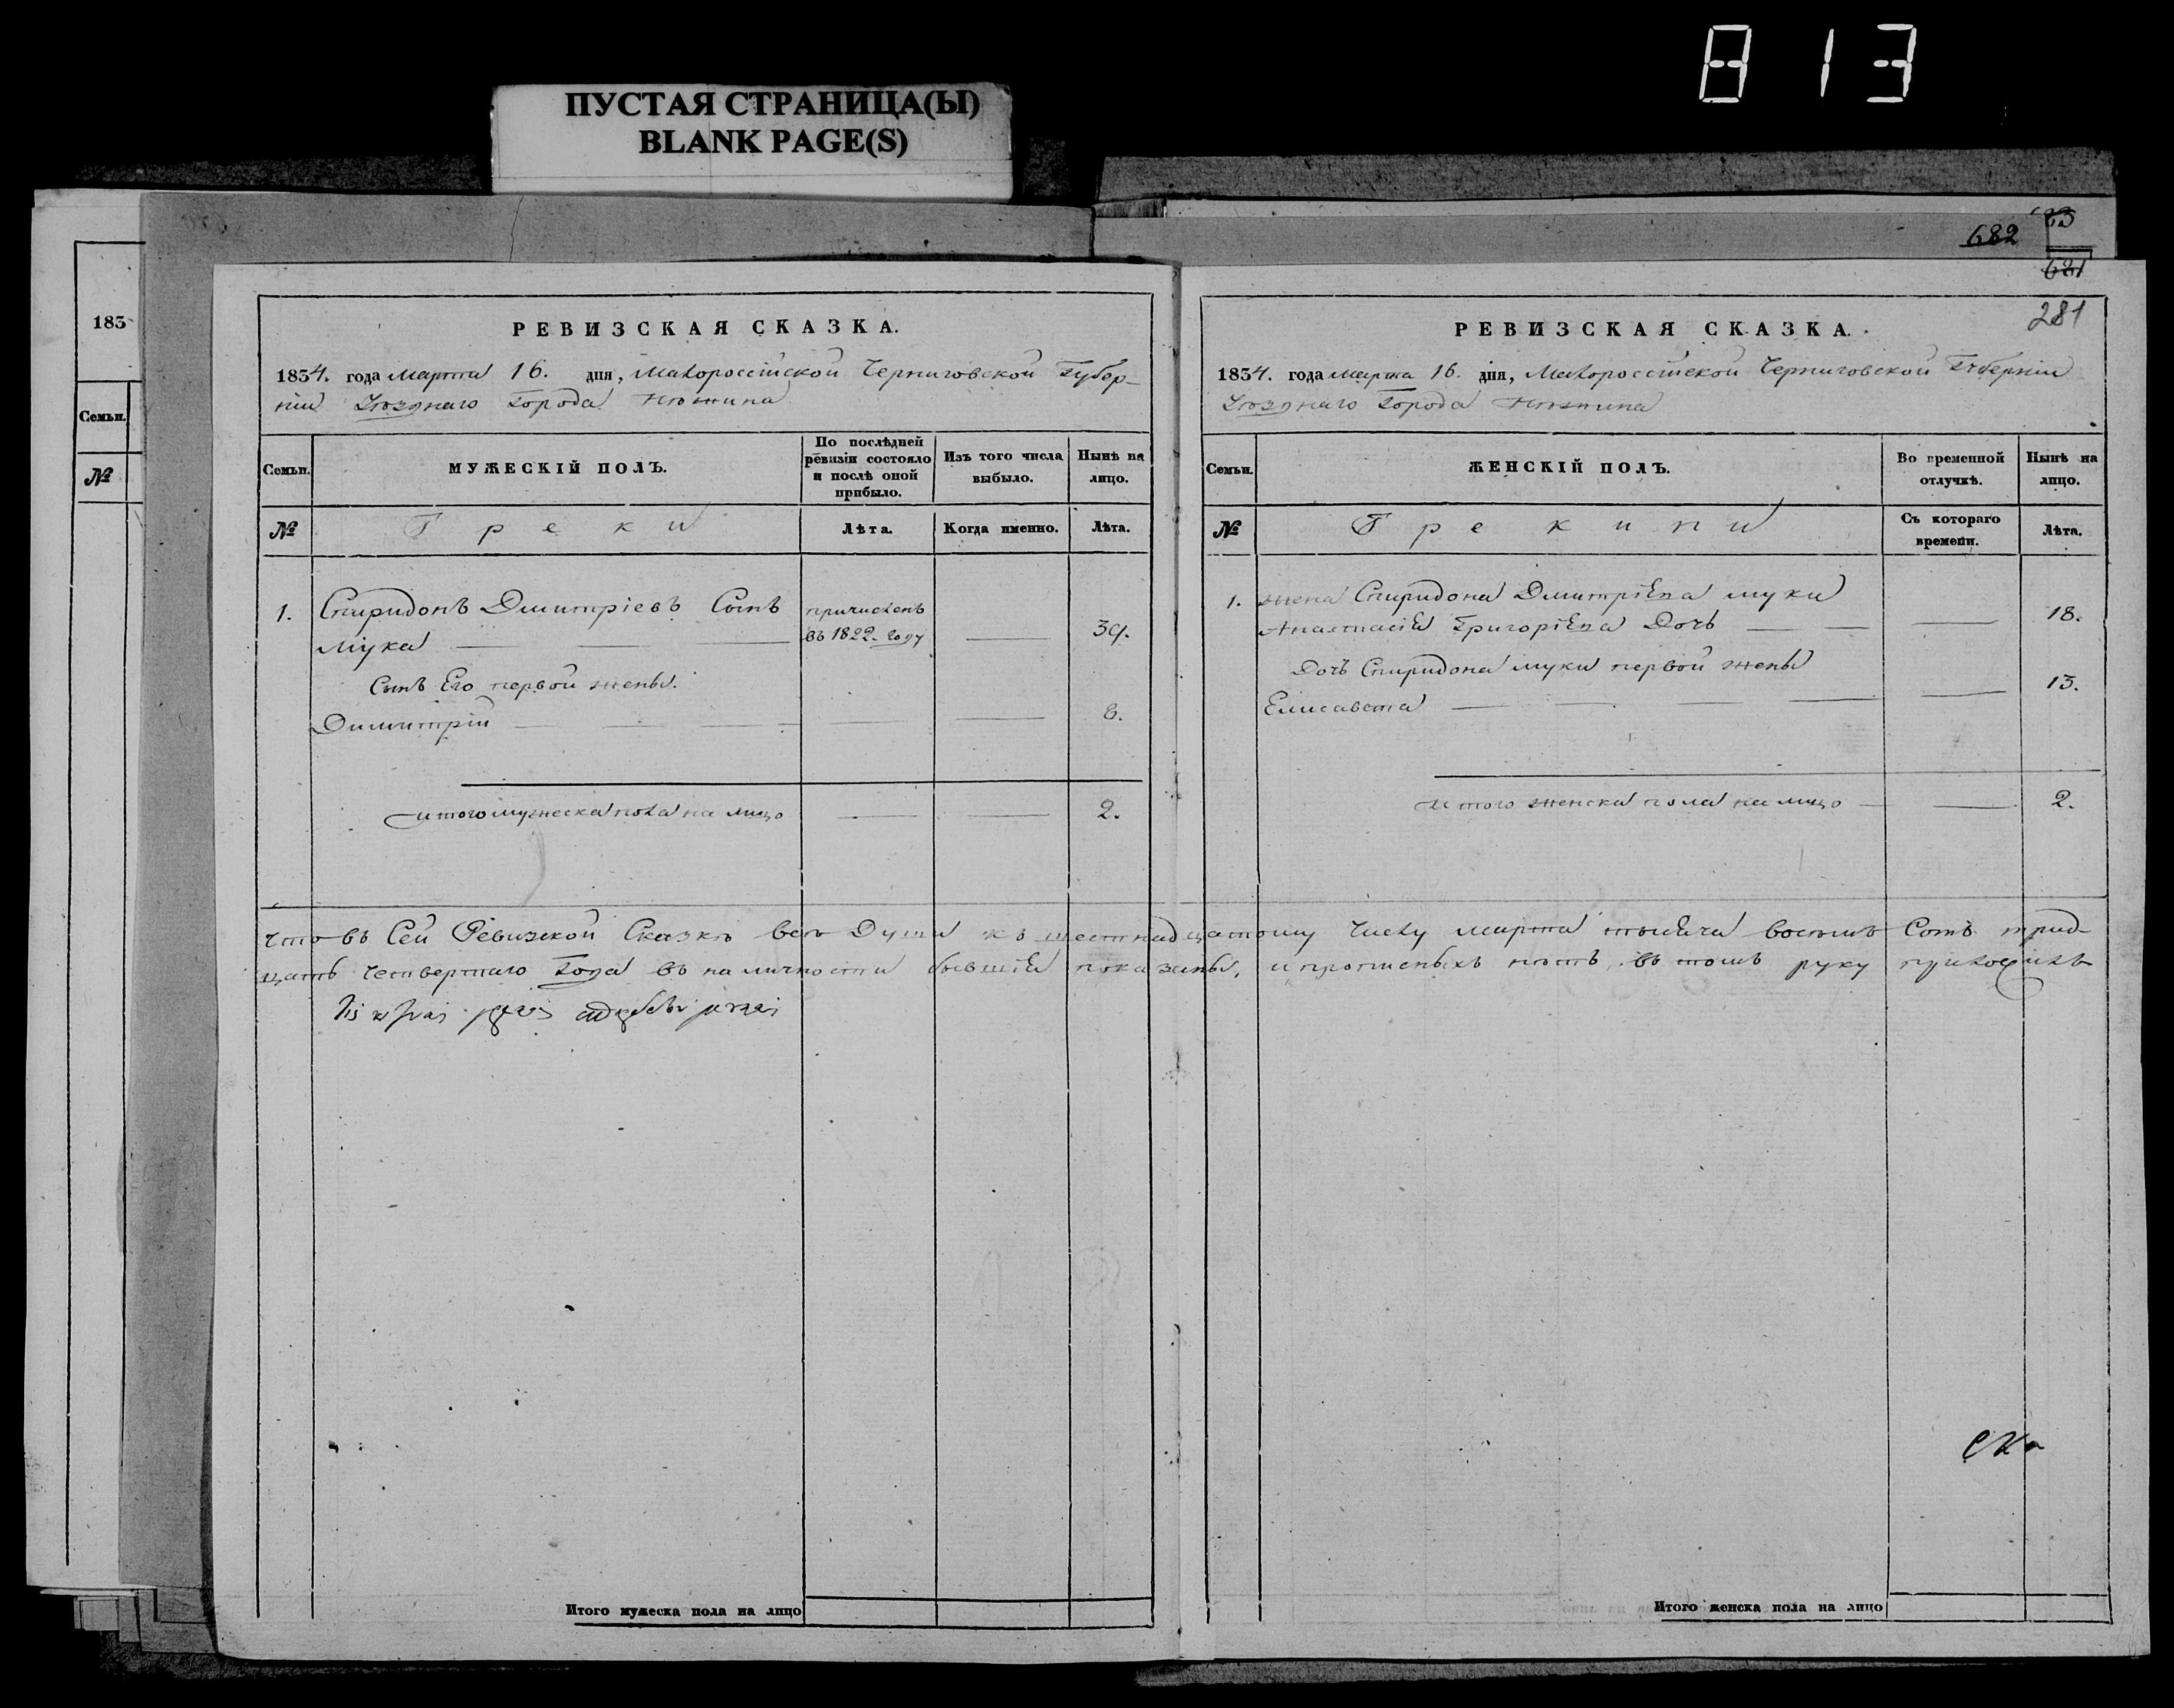 813
ПУСТАЯ СТРАНИЦА(Ы)
BLANK PAGE(S)
183
Семьи.
№
682
83
681
281
РЕВИЗСКАЯ СКАЗКА.
1834. года марта 16. дня, Малороссійской Черниговской Губер-
ніи Уѣзднаго Города Нѣжина
Семьи.
МУЖЕСКІЙ ПОЛЪ.
По послѣдней ревизіи состояло и послѣ оной прибыло.
Изъ того числа выбыло.
Нынѣ на лицо.
№
Греки
Лѣта.
Когда именно.
Лѣта.
1. Спиридонъ Димитріевъ Сынъ причисленъ
Мука въ 1822. году 39.
Сынъ Его первой жены.
Димитрій 8.
итого мужеска пола на лицо 2.
РЕВИЗСКАЯ СКАЗКА.
1834. года марта 16. дня, Малороссійской Черниговской Губерніи
Уѣзднаго Города Нѣжина
Семьи.
ЖЕНСКІЙ ПОЛЪ.
Во временной отлучкѣ.
Нынѣ на лицо.
№
Грекини
Съ котораго времени.
Лѣта.
1. жена Спиридона Димитріева муки
Анастасія Григоріева Дочь 18.
Дочь Спиридона муки первой жены
Елисавета 13.
итого женска пола на лицо 2.
что въ Сей Ревизской Сказкѣ всѣ Души къ шестнадцатому числу марта тысяча восемь Сотъ трид-
цать четвертаго Года въ наличности бывшія показаны, и прописныхъ нѣтъ, въ томъ руку приложилъ
Итого мужеска пола на лицо
Итого женска пола на лицо